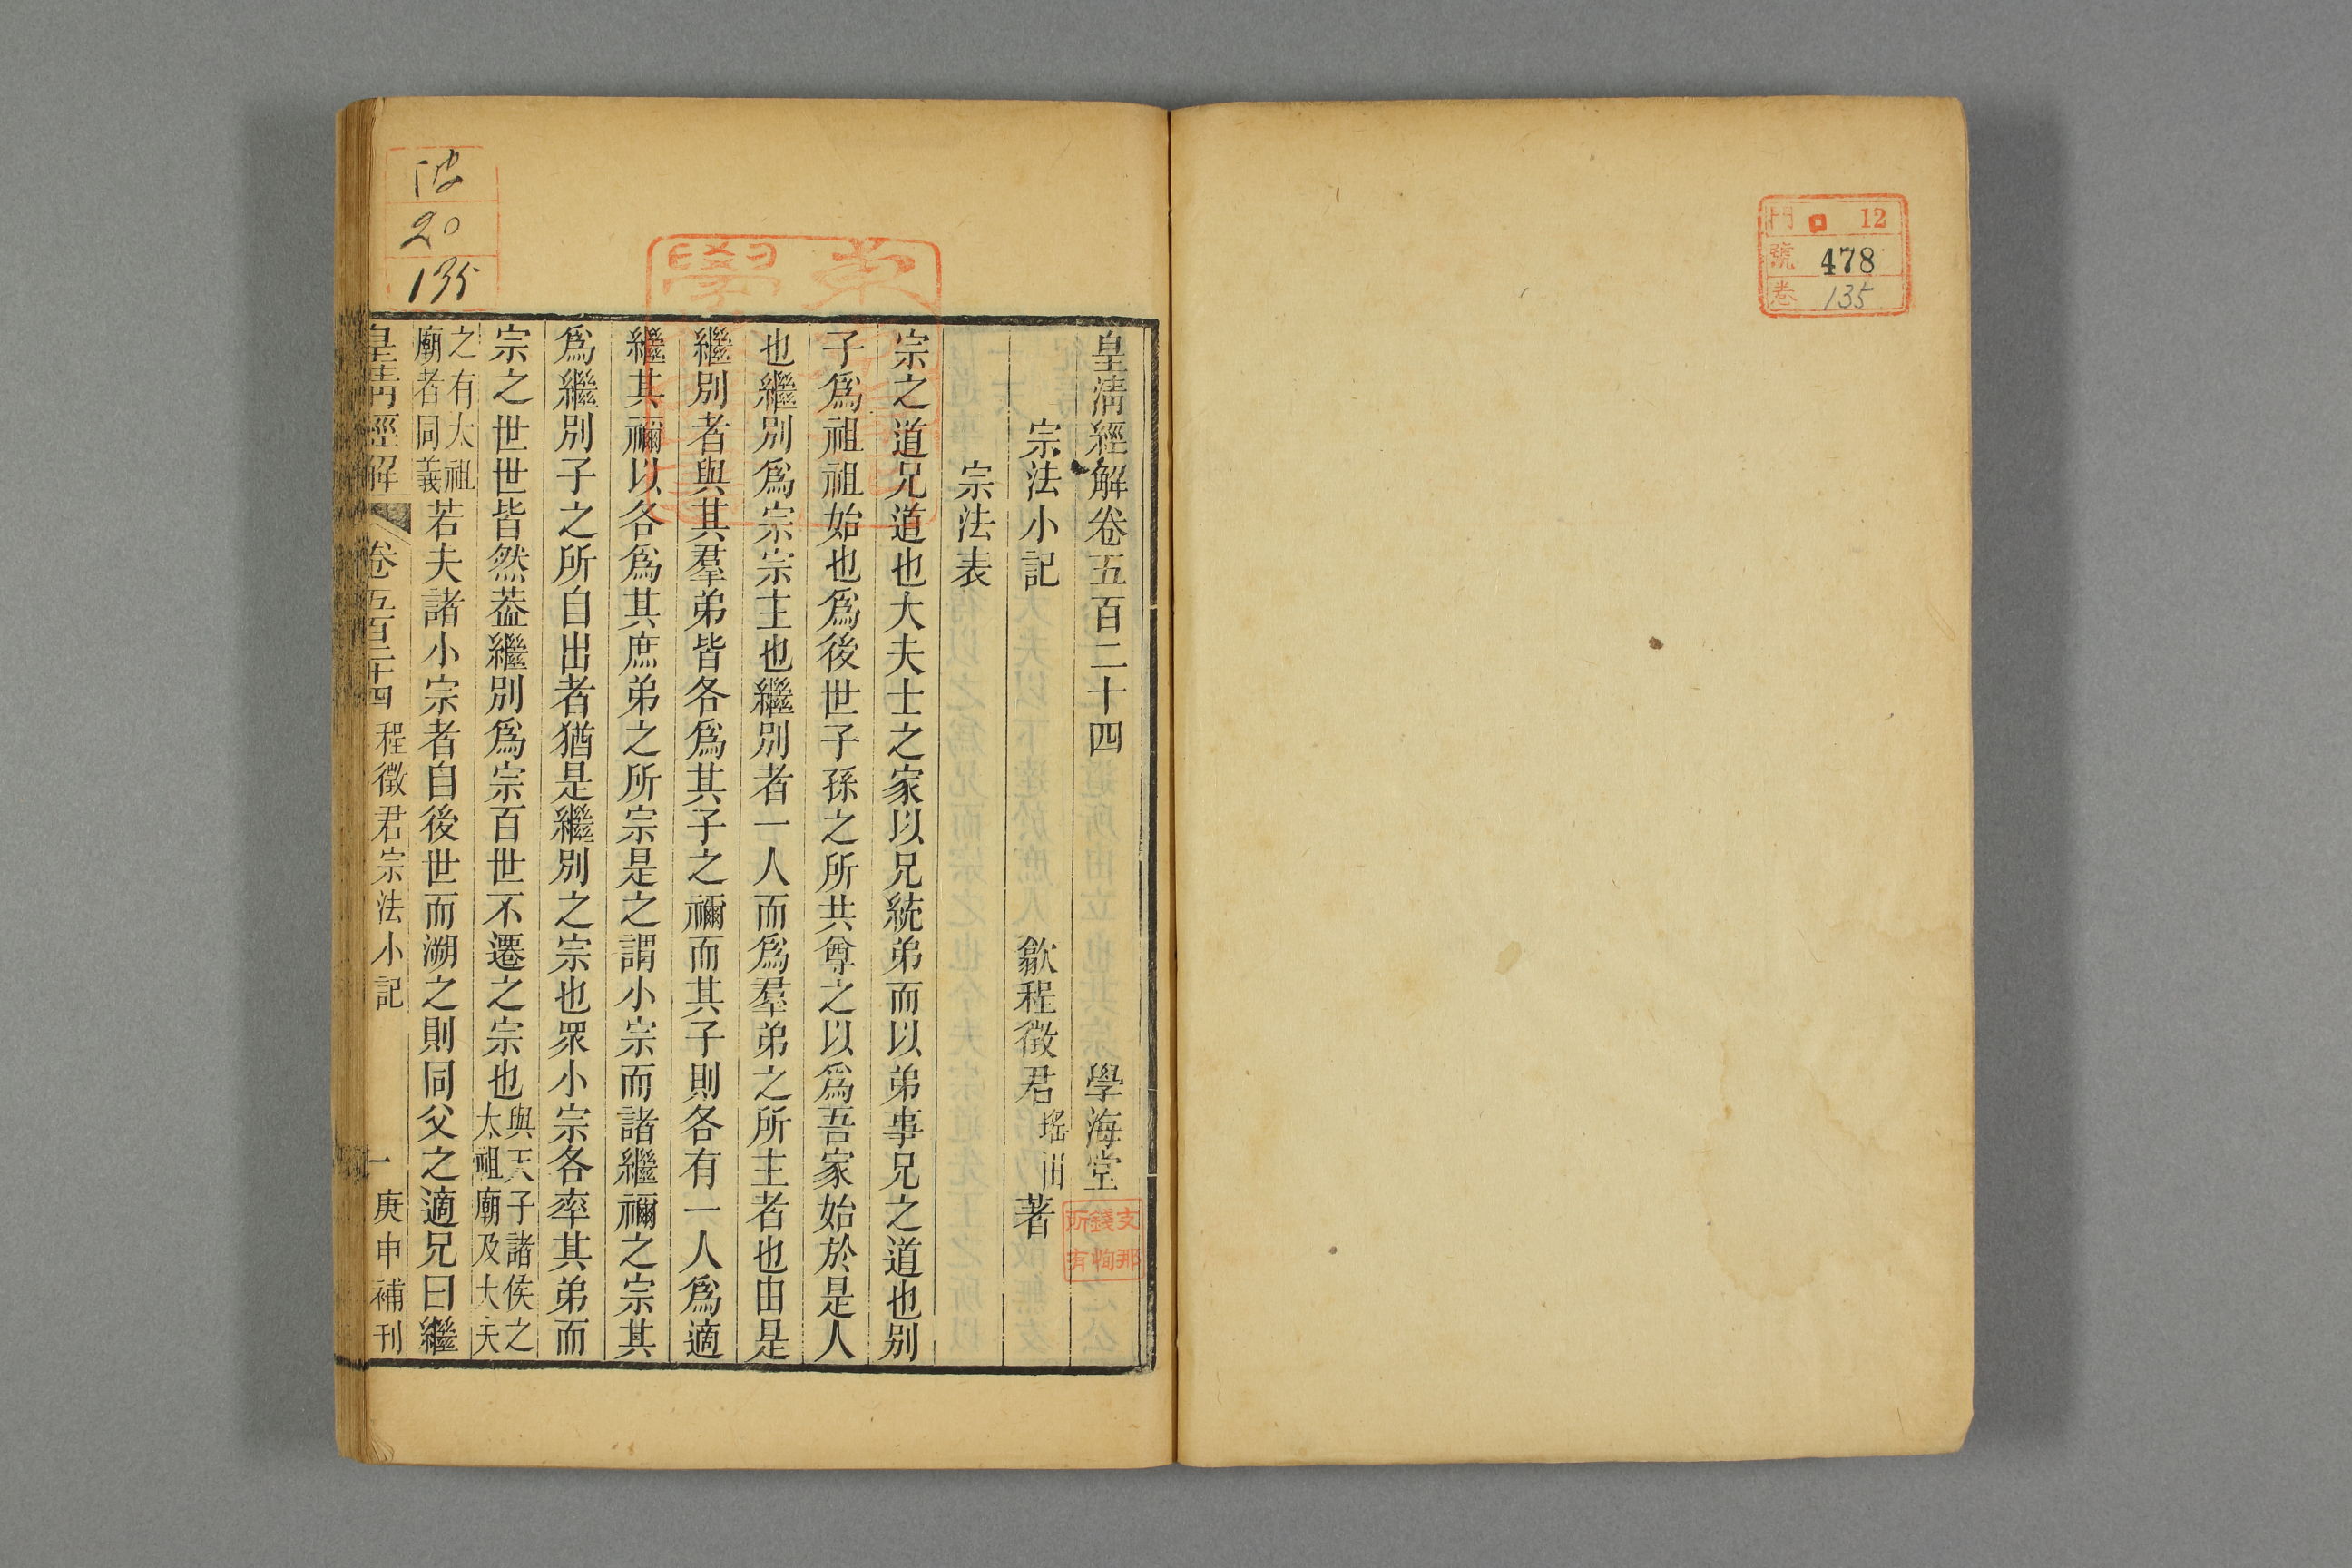 門 12
號 478
卷 135
皇淸經解卷五百二十四 學海堂
宗法小記 歙程徵君瑤田著
宗法表
宗之道兄道也大夫士之家以兄統弟而以弟事兄之道也別
子爲祖祖始也爲後世子孫之所共尊之以爲吾家始於是人
也繼別爲宗宗主也繼別者一人而爲羣弟之所主者也由是
繼別者與其羣弟皆各爲其子之禰而其子則各有一人爲適
繼其禰以各爲其庶弟之所宗是之謂小宗而諸繼禰之宗其
爲繼別子之所自出者猶是繼別之宗也眾小宗各率其弟而
宗之世世皆然葢繼別爲宗百世不遷之宗也與天子諸侯之太祖廟及大夫
之有太祖廟者同義若夫諸小宗者自後世而溯之則同父之適兄曰繼
皇淸經解 卷五百二十四 程徵君宗法小記 一 庚申補刊
支那
錢恂
所有
20
135